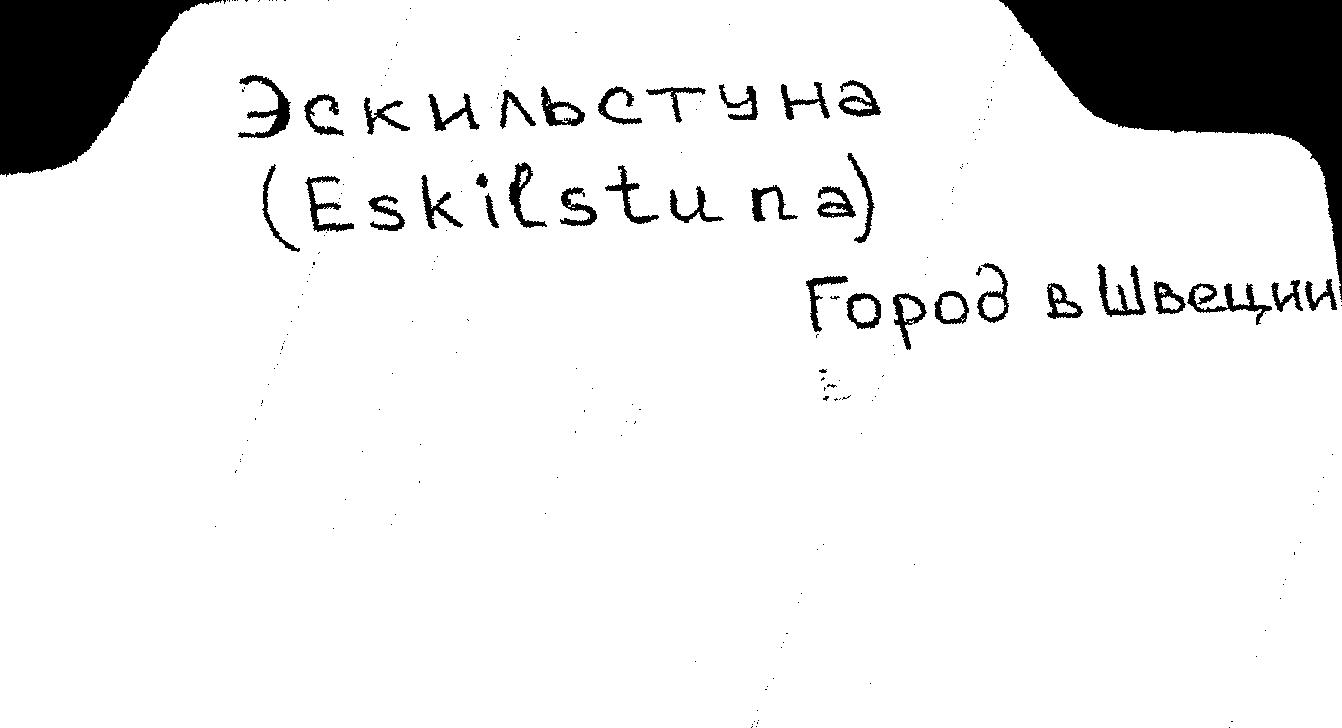 Эскильстуна
(Eskilstuna)
Город в Швеции